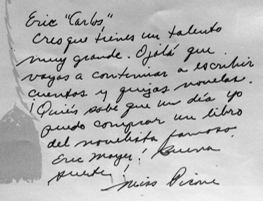 Eric "Carlos"
Creo que tienes un talento
muy grande. Ojalá que
vayas a continuar a escribir
cuentos y quizás novelas.
¡Quién sabe que un día yo
puedo comprar un libro
del novelista famoso,
Eric Mayer! Buena
suerte!
Miss